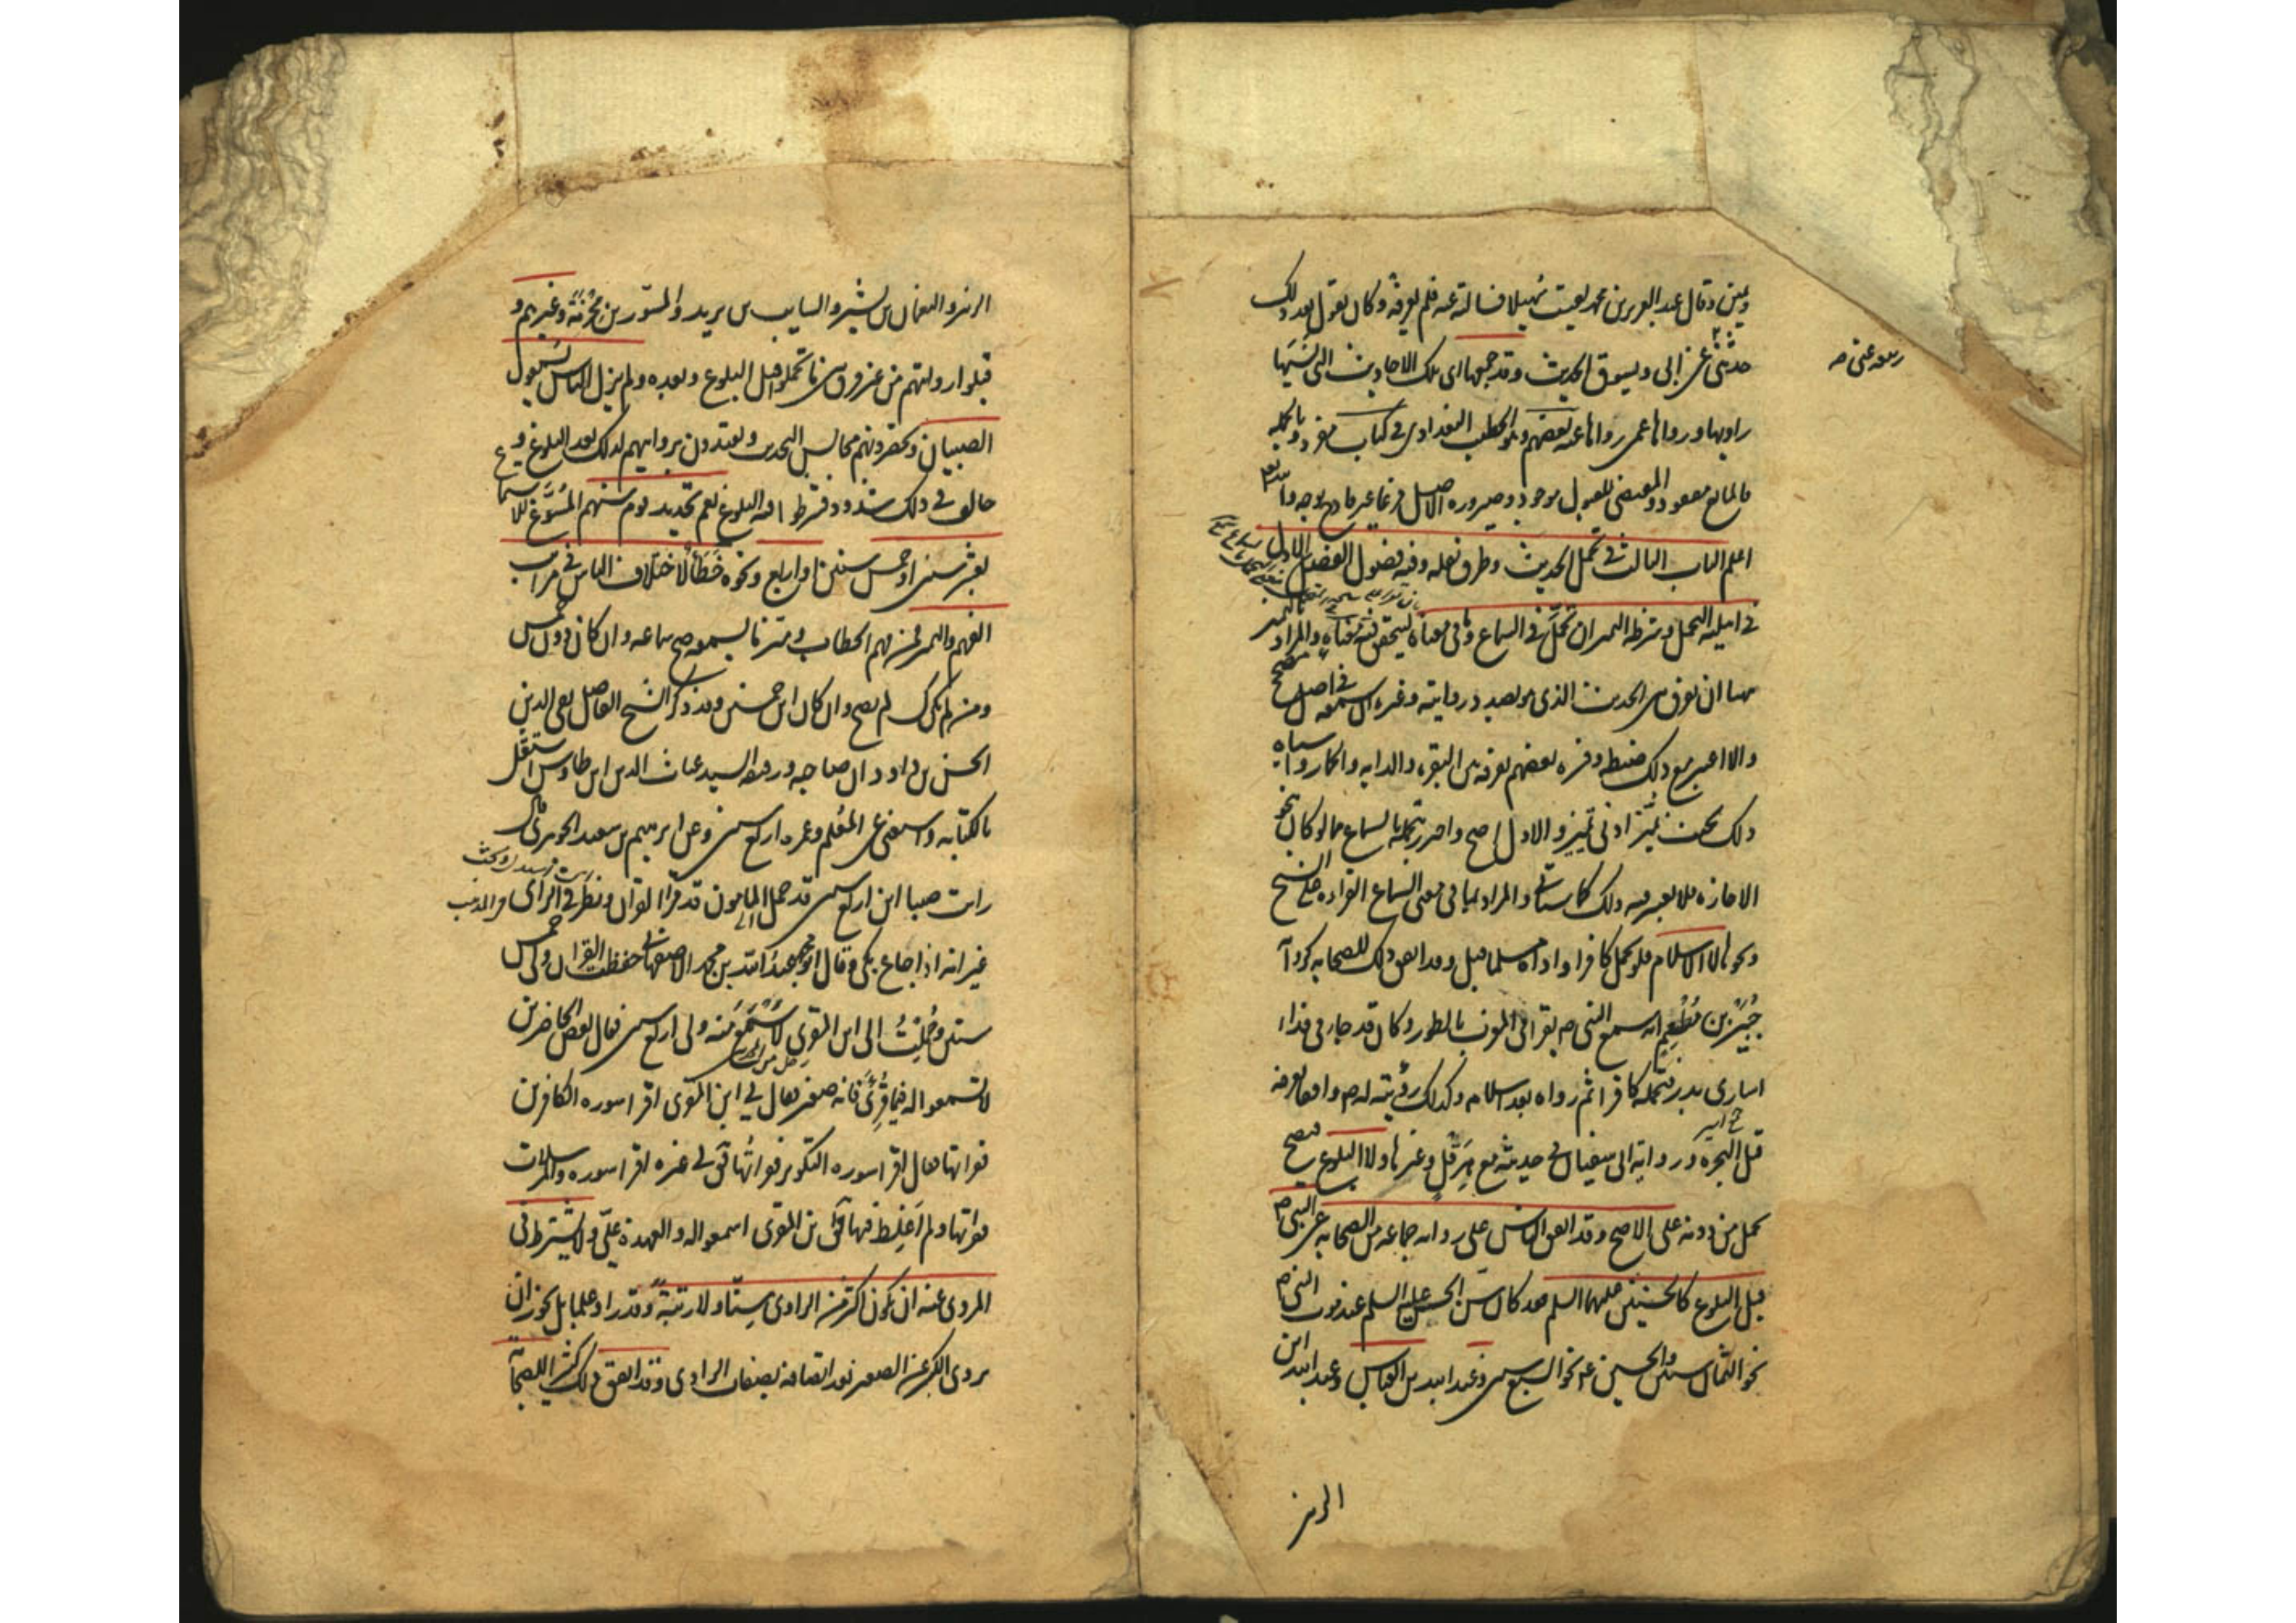 ويمين وقال عبد العزيز بن محمد لقيت سهيلا فسالته عنه فلم يعرفه وكان يقول بعد ذلك
حدثني ربيعة عني عن ابي ويسوق الحديث وقد جمعها اى تلك الاحاديث التي نسيها
راويها ورواها عمن رواها عنه بعضهم وهو الخطيب البغدادى في كتاب مفرد وبالجملة
فالمانع مفقود والمقتضى للقبول موجود وصيرورة الاصل فرعا غير قادح بوجه والله
اعلم الباب الثالث في تحمل الحديث وطرق نقله وفيه فصول الفصل الاول
في اهلية التحمل وشرطه التميز ان تحمل في السماع وما في معناه ليتحقق فيه معناه والمراد بالتميز
هنا ان يفرق بين الحديث الذى هو بصدد روايته وغيره ان سمعه في اصل مصحح
والا اعتبر مع ذلك ضبطه وفسره بعضهم بفرقه بين البقرة والدابة والحمار واشباه
ذلك بحيث يميز ادنى تميز والاول اصح واحترز بتحمله بالسماع عما لو كان بنحو
الاجازة فلا يعتبر فيه ذلك كما سياتي والمراد بما في معنى السماع القراءة على الشيخ
ونحوها لا الاسلام فلو تحمل كافرا واداه مسلما قبل وقد اتفق ذلك للصحابة كرواية
جبير بن مطعم انه سمع النبي ص يقرا في المغرب بالطور وكان قد جاء في فداء
اسارى بدر فتحمله كافرا ثم رواه بعد اسلامه وكذلك رؤيته له ص واقفا بعرفة
قبل الهجرة ورواية ابي سفيان في حديثه مع هرقل وغيرها ولا البلوغ فيصح
تحمل من دونه على الاصح وقد اتفق الناس على رواية جماعة من الصحابة عن النبي ص
قبل البلوغ كالحسنين عليهما السلم فقد كان سن الحسن عليه السلم عند موت النبي ص
نحو الثمان سنين والحسين عه نحو السبع سنين وعبد الله بن العباس وعبد الله ابن
الزبير
الزبير والنعمان بن بشير والسايب بن يزيد والمسور بن مخرمة وغيرهم و
قبلوا روايتهم من غير فرق بين ما تحملوا قبل البلوغ وبعده ولم يزل الناس يسمعون
الصبيان ويحضرونهم مجالس التحديث ويعتدون بروايتهم لذلك بعد البلوغ و
خالف في ذلك شذوذ فشرطوا فيه البلوغ نعم تحديد قوم سنهم المسوغ للاسماع
بعشر سنين او خمس سنين او اربع ونحوه خطأ لاختلاف الناس في مراتب
الفهم والتميز فمن فهم الخطاب وميز ما يسمعه صح سماعه وان كان دون خمس
ومن لم يكن كذلك لم يصح وان كان ابن خمسين وقد ذكر الشيخ الفاضل تقي الدين
الحسن بن داود ان صاحبه ورفيقه السيد غياث الدين ابن طاوس استقل
بالكتابة واستغنى عن المعلم وعمره اربع سنين وعن ابرهيم بن سعيد الجوهري قال
رايت صبيا ابن اربع سنين قد حمل الى المامون قد قرا القران ونظر في الراى
غير انه اذا جاع بكى وقال ابو محمد عبد الله بن محمد الاصفهاني حفظت القران ولي خمس
سنين وحملت الى ابن المقرى لاسمع منه ولي اربع سنين فقال بعض الحاضرين
لا تسمعوا له فيما قرئ فانه صغير فقال لي ابن المقرى اقرا سورة الكافرين
فقراتها فقال اقرا سورة التكوير فقراتها فقال لي غيره اقرا سورة والمرسلات
فقراتها ولم اغلط فيها فقال ابن المقرى اسمعوا له والعهدة علي ولا يشترط في
المروى عنه ان يكون اكبر من الراوى سنا ولا رتبة وقدرا وعلما بل يجوز ان
يروى الكبير عن الصغير بعد اتصافه بصفات الراوى وقد اتفق ذلك كثيرا للصحابة